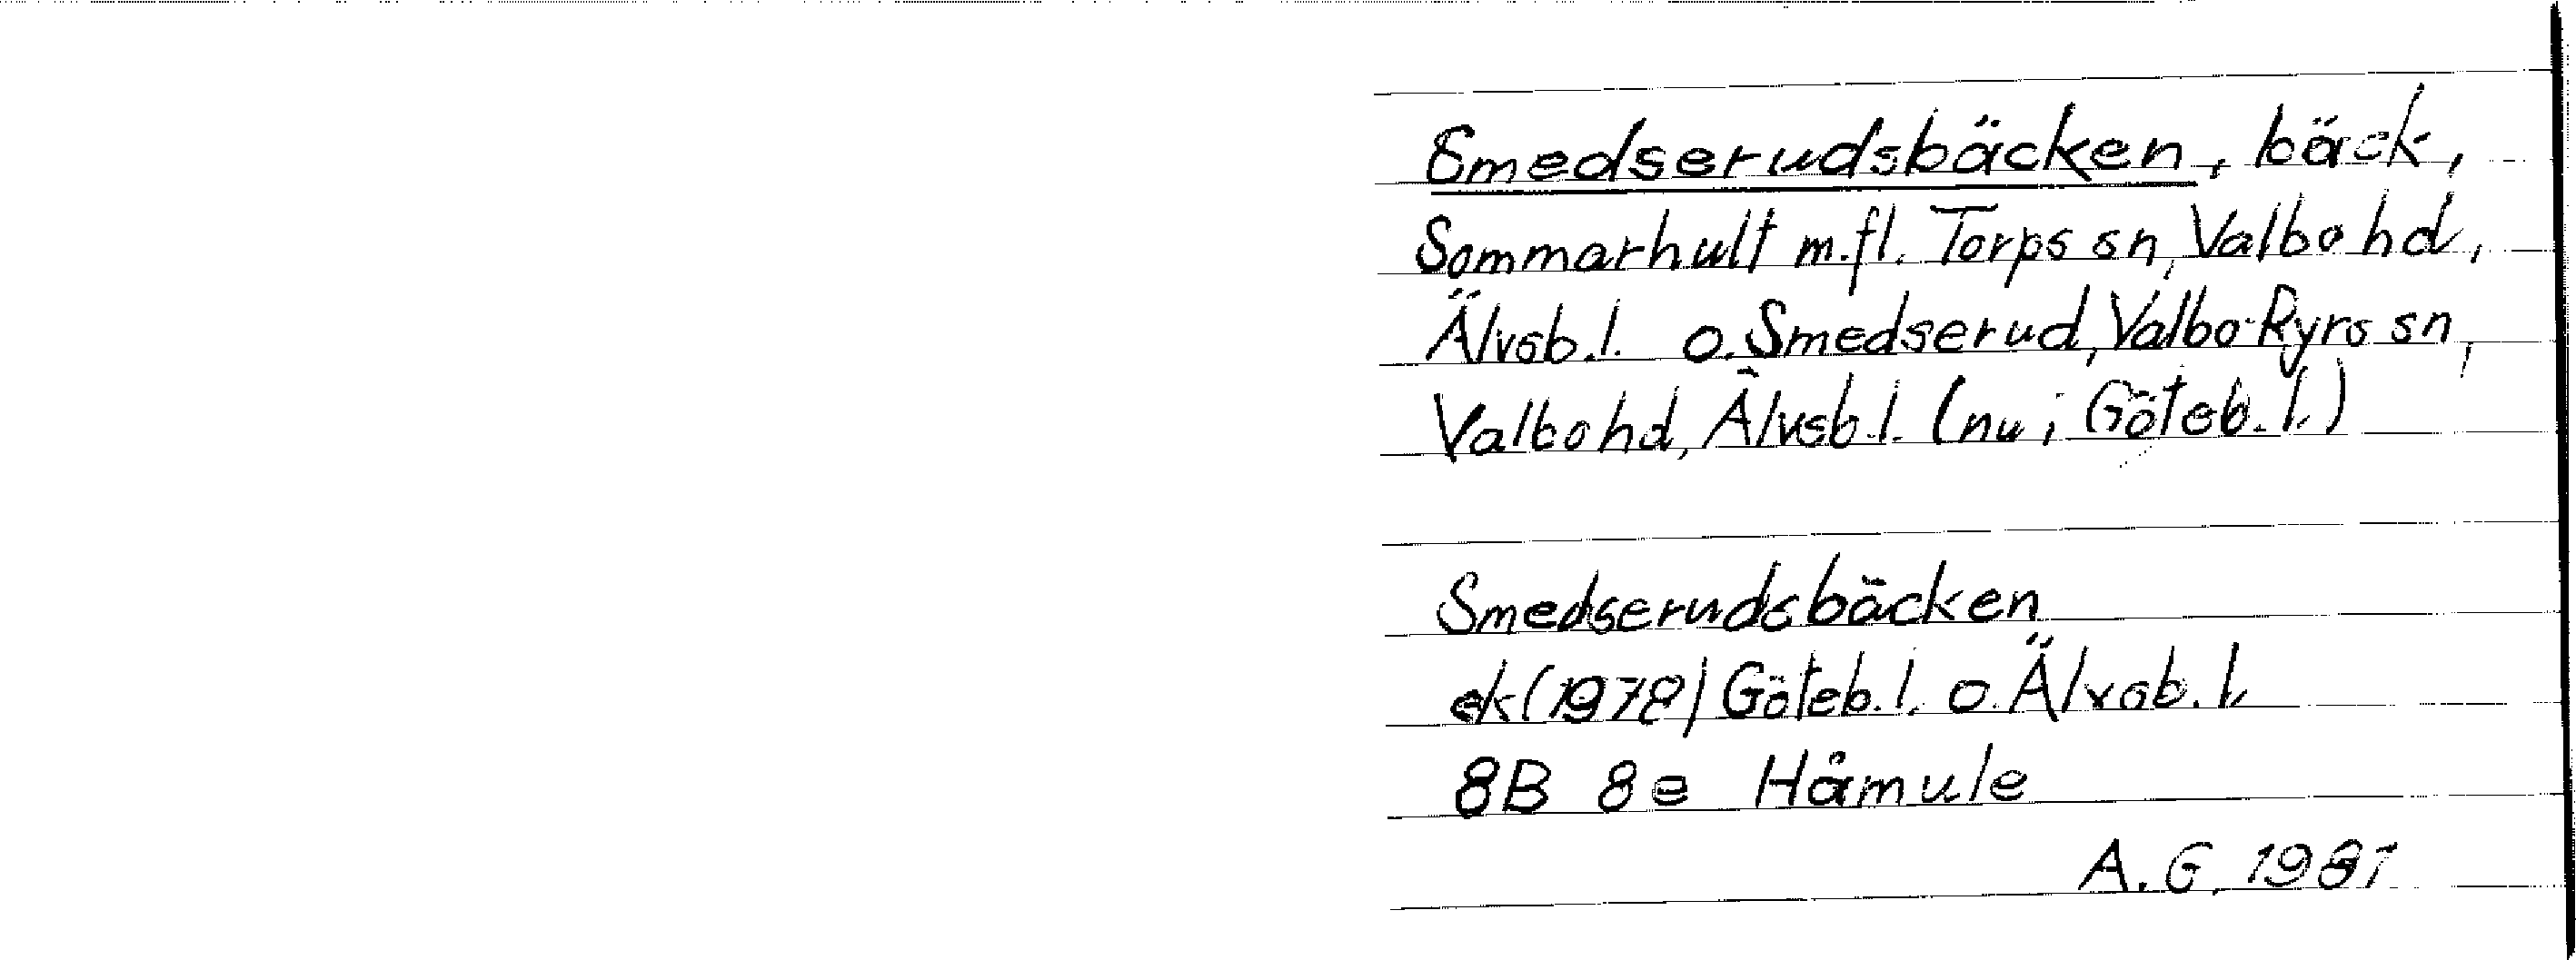 Smedserudsbäcken, bäck,
Sommarhult m.fl. Torps sn, Valbo hd,
Älvsb.l. o. Smedserud, Valbo-Ryrs sn,
Valbo hd, Älvsb.l. (nu i Göteb.l.)
Smedserudsbäcken
ek (1978) Göteb.l. o. Älvsb.l.
8B 8e Håmule
A.G. 1981